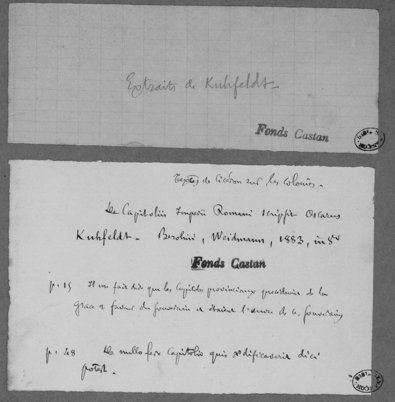 Extraits de Kuhfeldt
Fonds Castan
Textes de Cicéron sur les colonies.
De Capitoliis Imperii Romani scripsit Oscarus
Kuhfeldt. Berolini, Weidmann, 1883, in 8°
Fonds Castan
p. 15 Il me fait dire que les Capitoles provinciaux procédaient de la
grâce et faveur du souverain et étaient l'œuvre de ce souverain
p. 48 De nullo fere Capitolio quis ædificaverit dici
potest.